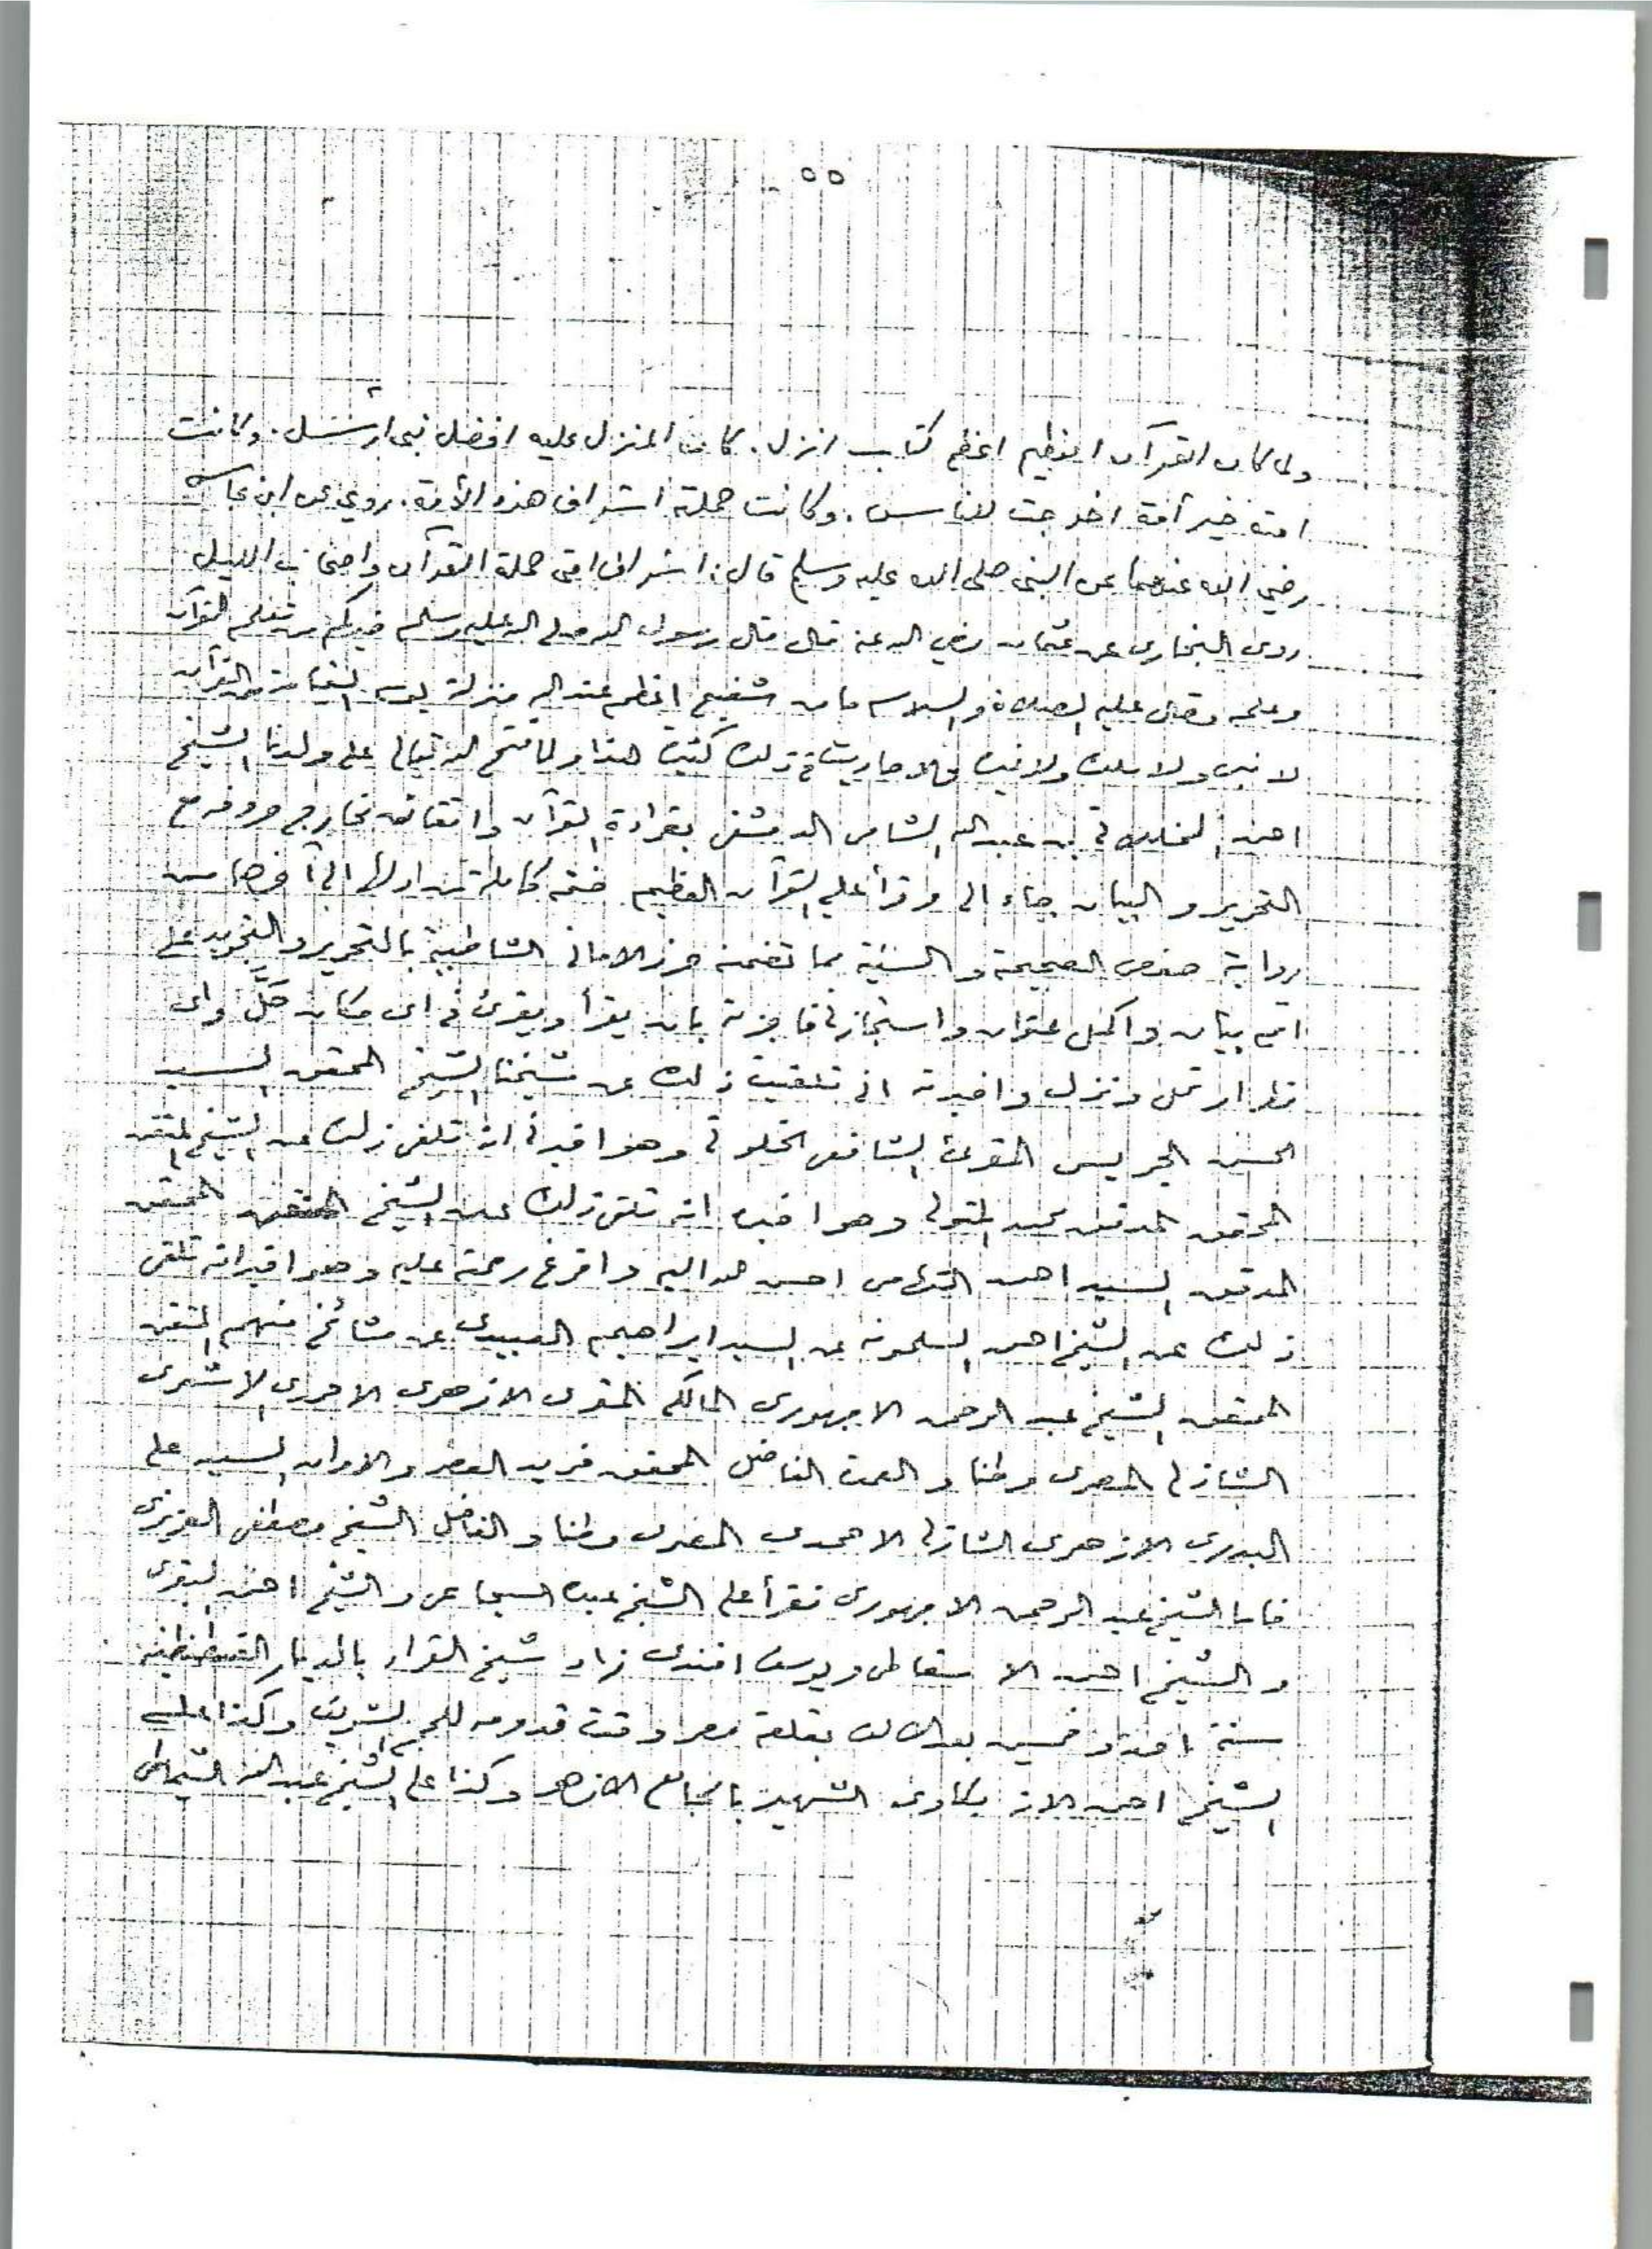 ٥٥
ولما كان القرآن العظيم اعظم كتاب انزل. كان المنزل عليه افضل نبى ارسل. وكانت
امته خير أمة اخرجت للناس. وكانت حملته اشراف هذه الأمة. روي عن ابن عباس
رضي الله عنهما عن النبى صلى الله عليه وسلم قال: اشراف امتى حملة القرآن واصحاب الليل
روى البخاري عن عثمان رضي الله عنه قال قال رسول الله صلى الله عليه وسلم خيركم من تعلم القرآن
وعلمه وقال عليه الصلاة والسلام ما من شفيع اعظم عند الله منزلة يوم القيامة من القرآن
لا نبى ولا ملك ولا غيره والاحاديث في ذلك كثيرة هذا ولما فتح الله تعالى على ولدنا الشيخ
احمد الخلوتى بن عبد الله الشامى الدمشقى بقراءة القرآن واتقان مخارج حروفه مع
التحرير والبيان جاء الى وقرأ على القرآن العظيم ختمة كاملة من اولها الى آخرها من
رواية حفص الصحيحة والسنية بما تضمنه حرز الامانى الشاطبية بالتحرير والتجويد على
اتم بيان واكمل عنوان واستجازنى فاجزته بان يقرأ ويقرئ في اى مكان حلَّ واى
قطر ارتحل ونزل واخبرته انى تلقيت ذلك عن شيخنا الشيخ المحقق السيد
الحسن الجريس المقرئ الشافعى الخلوتى وهو اخبرنى انه تلقى ذلك عن الشيخ المتقن
المحقق المدقق محمد المتولى وهو اخبره انه تلقى ذلك عن الشيخ المتقن المحقق
المدقق السيد احمد التهامى احسن الله اليه وافرغ رحمته عليه وهو اخبر انه تلقى
ذلك عن الشيخ احمد السلمونه عن السيد ابراهيم العبيدى عن مشائخ منهم المتقن
المحقق الشيخ عبد الرحمن الاجهورى المالكى المقرى الازهرى الاحمدى الاشعرى
الشاذلى المصرى وطنا والعمدة الفاضل المحقق فريد العصر والاوان السيد على
البدرى الازهرى الشاذلى الاحمدى المصرى وطنا والفاضل الشيخ مصطفى العزيزى
فاما الشيخ عبد الرحمن الاجهورى فقرأ على الشيخ عبده السجاعى والشيخ احمد البقرى
والشيخ احمد الاسقاطى ويوسف افندى زاد شيخ القراء بالديار القسطنطينية
سنة واحد وخمسين بعد الالف بقلعة مصر وقت قدومه للحج الشريف وكذا على
الشيخ احمد الازبكاوى الشهير بالجامع الازهر وكذا على الشيخ عبد الله الشماطى